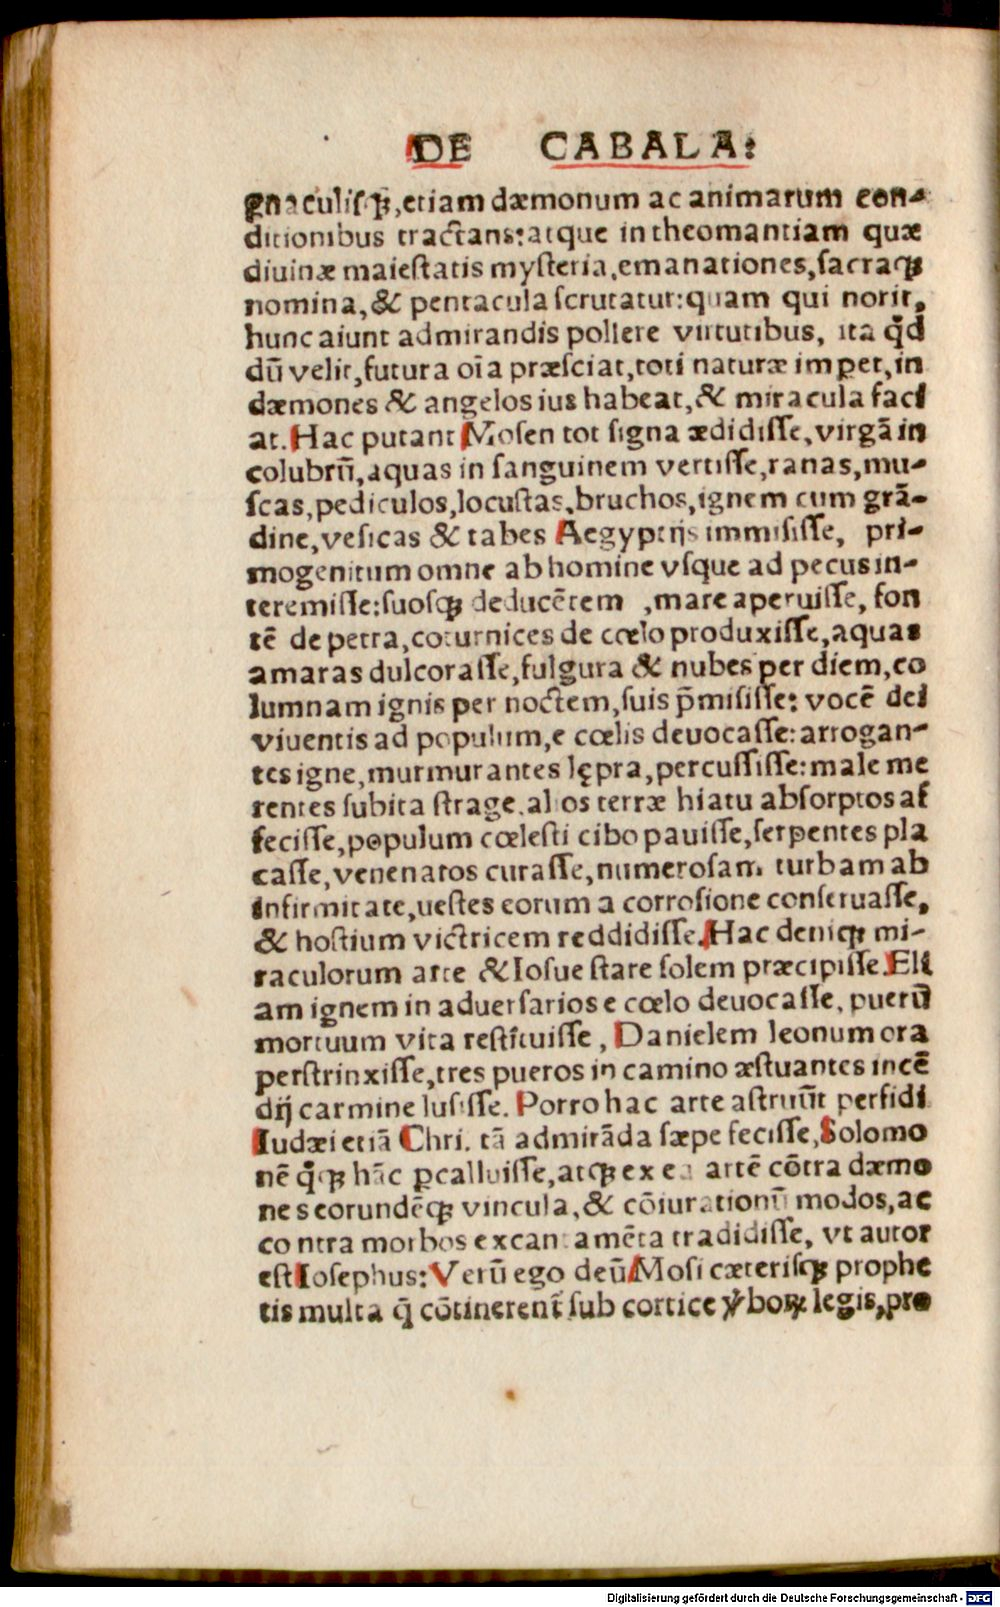 DE CABALA:
gnaculisq́;, etiam dæmonum ac animarum con-
ditionibus tractans: atque in theomantiam quæ
diuinæ maiestatis mysteria, emanationes, sacraq;
nomina, & pentacula scrutatur: quam qui norit,
hunc aiunt admirandis pollere virtutibus, ita qd̓
dū velit, futura oīa præsciat, toti naturæ imꝑet, in
dæmones & angelos ius habeat, & miracula faci
at. Hac putant Mosen tot signa ædidisse, virgā in
colubrū, aquas in sanguinem vertisse, ranas, mu-
scas, pediculos, locustas, bruchos, ignem cum grā-
dine, vesicas & tabes Aegyptijs immisisse, pri-
mogenitum omne ab homine vsque ad pecus in-
teremisse: suosq; deducētem , mare aperuisse, fon
tē de petra, coturnices de cœlo produxisse, aquas
amaras dulcorasse, fulgura & nubes per diem, co
lumnam ignis per noctem, suis p̄misisse: vocē dei
viuentis ad populum, e cœlis deuocasse: arrogan-
tes igne, murmurantes lępra, percussisse: male me
rentes subita strage, alios terræ hiatu absorptos af
fecisse, populum cœlesti cibo pauisse, serpentes pla
casse, venenatos curasse, numerosam turbam ab
infirmitate, uestes eorum a corrosione conseruasse,
& hostium victricem reddidisse. Hac deniq; mi-
raculorum arte & Iosue stare solem præcipisse. Eli
am ignem in aduersarios e cœlo deuocasse, puerū
mortuum vita restituisse, Danielem leonum ora
perstrinxisse, tres pueros in camino æstuantes incē
dij carmine lusisse. Porro hac arte astruūt perfidi
Iudæi etiā Chri. tā admirāda sæpe fecisse, Solomo
nē qͦq; hāc ꝑcalluisse, atq; ex ea artē cōtra dæmo
nes eorundēq; vincula, & cōiurationū modos, ac
contra morbos excantamēta tradidisse, vt autor
est Iosephus: Verū ego deū Mosi cæterisq; prophe
tis multa q̄ cōtinerent̄ sub cortice v̓boꝝ legis, pro
Digitalisierung gefördert durch die Deutsche Forschungsgemeinschaft - DFG